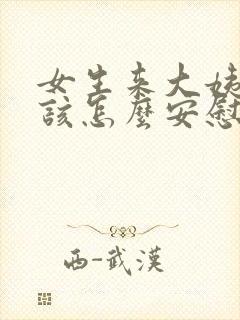 女生来大姨
該怎麼安慰
西-武漢